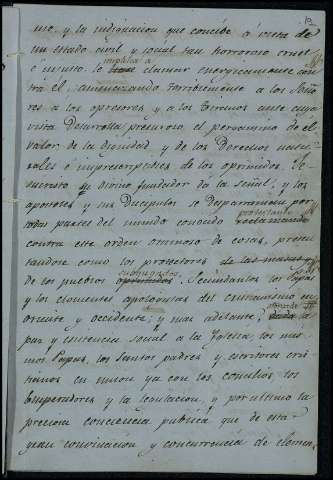 mo, y la indignacion que concibe á vista de
un estado civil y social tan horroroso cruel
impulsa á
é injusto, le hace clamar energicamente con
tra el, amenazando terriblemente a los Seño
res a los opresores y a los tiranos ante cuya
vista desarrolla presuroso el pergamino del
valor, de la dignidad y de los derechos natu
rales é imprescriptibles de los oprimidos. Je
sucristo su divino fundador da la señal, y los
apostoles y sus discipulos se desparraman por
protestando
todas partes del mundo conocido reclamando
contra este orden ominoso de cosas, presen
tandose como los protectores de las masas y
subyugados
de los pueblos oprimidos. Secundanlos los Papas
y los elocuentes apologistas del cristianismo en
oriente y occidente; y mas adelante, dada la
paz y existencia social a la Iglesia, los mis
mos Papas, los Santos padres y escritores cris
tianos en union ya con los concilios, los
Emperadores y la legislacion, y por ultimo la
preciosa conciencia publica que de esta
gran conspiracion y concurrencia de elemen